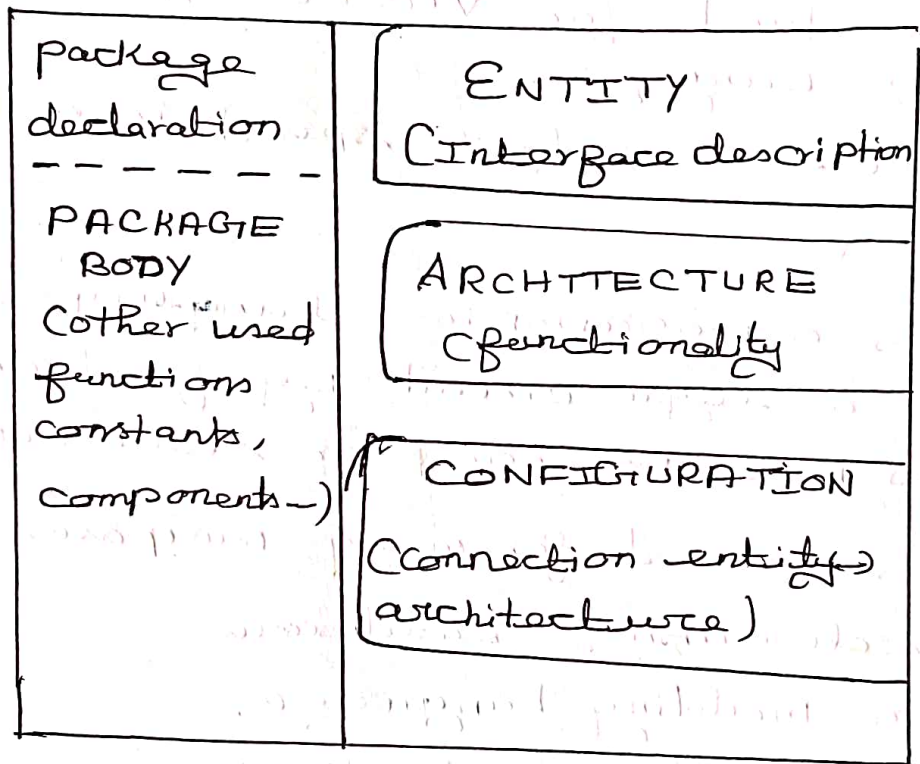 package
declaration
PACKAGE
BODY
(other used
functions
constants,
components-)
ENTITY
(Interface description
ARCHITECTURE
(functionality
CONFIGURATION
(connection entity→
architecture)